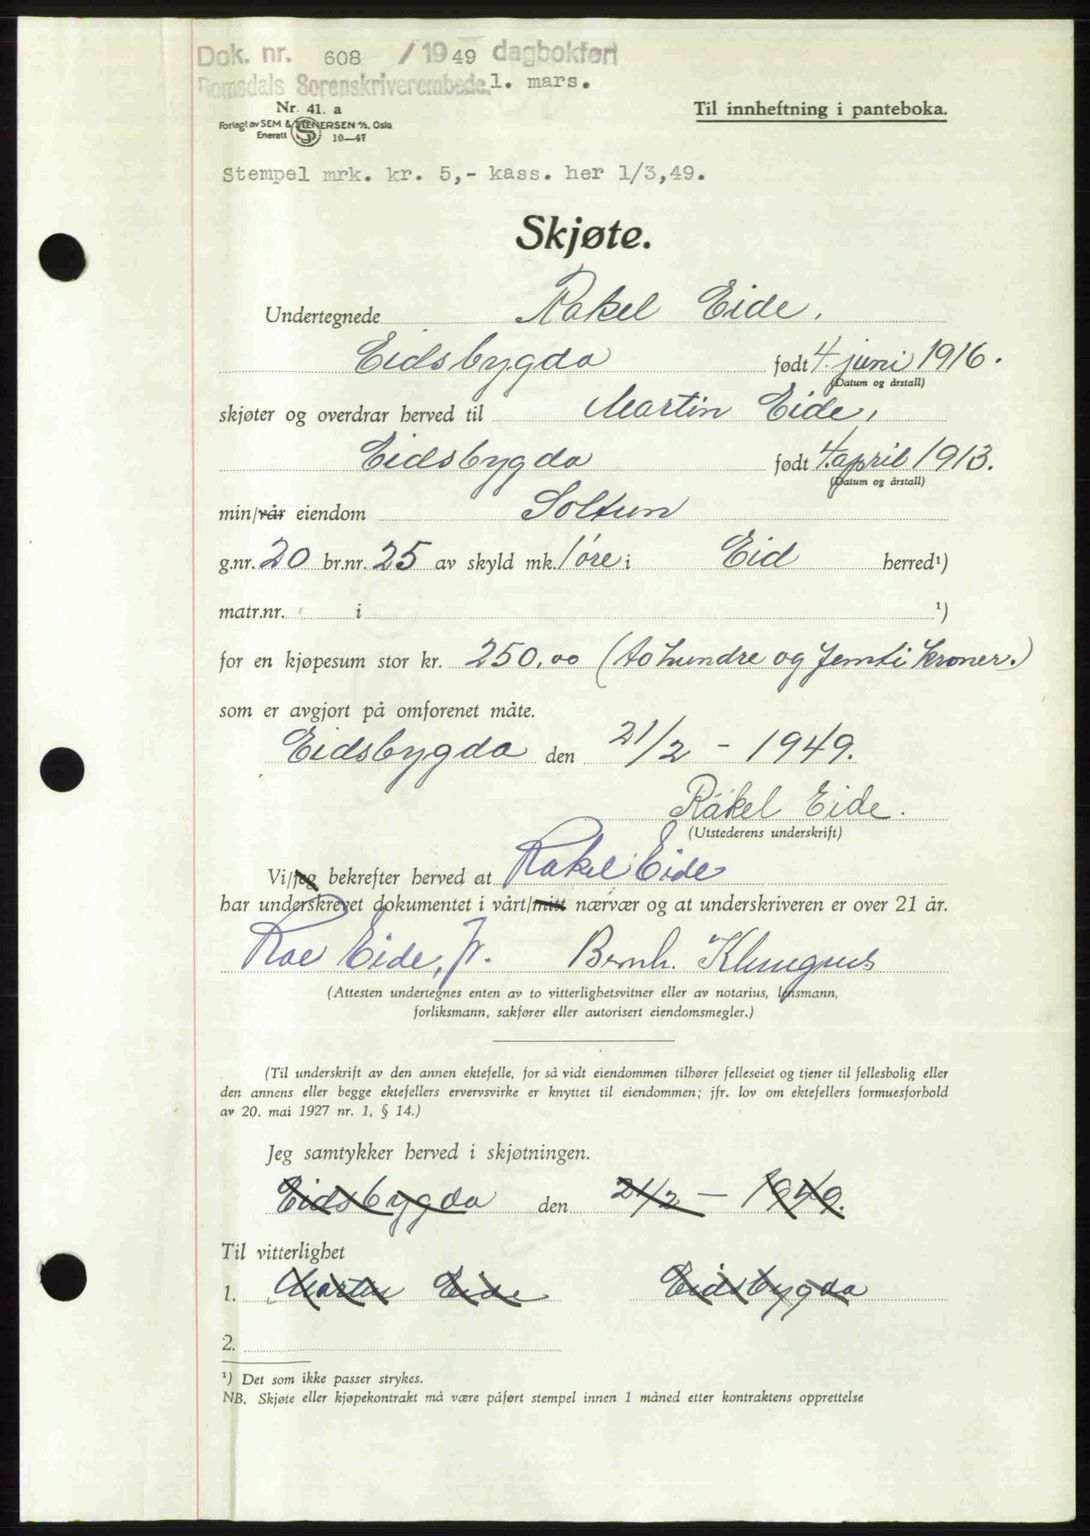 Dok. nr. 608 / 1949 dagbokført
Romsdals Sorenskriverembede. 1. mars.
Nr. 41. a
Forlagt av SEM & STENERSEN A/S, Oslo
Enerett S 10—47
Til innheftning i panteboka.
Stempel mrk. kr. 5,- kass. her 1/3,49.
Skjøte.
Undertegnede Rakel Eide,
Eidsbygda født 4. juni 1916.
(Datum og årstall)
skjøter og overdrar herved til Martin Eide,
Eidsbygda født 4. april 1913.
(Datum og årstall)
min/vår eiendom Soltun
g.nr. 20 br.nr. 25 av skyld mk. 1 øre i Eid herred¹)
matr.nr. i ¹)
for en kjøpesum stor kr. 250,00 (to hundre og femti kroner.)
som er avgjort på omforenet måte.
Eidsbygda den 21/2 - 1949.
Rakel Eide.
(Utstederens underskrift)
Vi/jeg bekrefter herved at Rakel Eide
har underskrevet dokumentet i vårt/mitt nærvær og at underskriveren er over 21 år.
Eide, jr. Bernh. Klungnes
(Attesten undertegnes enten av to vitterlighetsvitner eller av notarius, lensmann,
forliksmann, sakfører eller autorisert eiendomsmegler.)
(Til underskrift av den annen ektefelle, for så vidt eiendommen tilhører felleseiet og tjener til fellesbolig eller
den annens eller begge ektefellers ervervsvirke er knyttet til eiendommen; jfr. lov om ektefellers formuesforhold
av 20. mai 1927 nr. 1, § 14.)
Jeg samtykker herved i skjøtningen.
Eidsbygda den 21/2 — 1949.
Til vitterlighet
1. Martin Eide Eidsbygda
2.
¹) Det som ikke passer strykes.
NB. Skjøte eller kjøpekontrakt må være påført stempel innen 1 måned etter kontraktens opprettelse